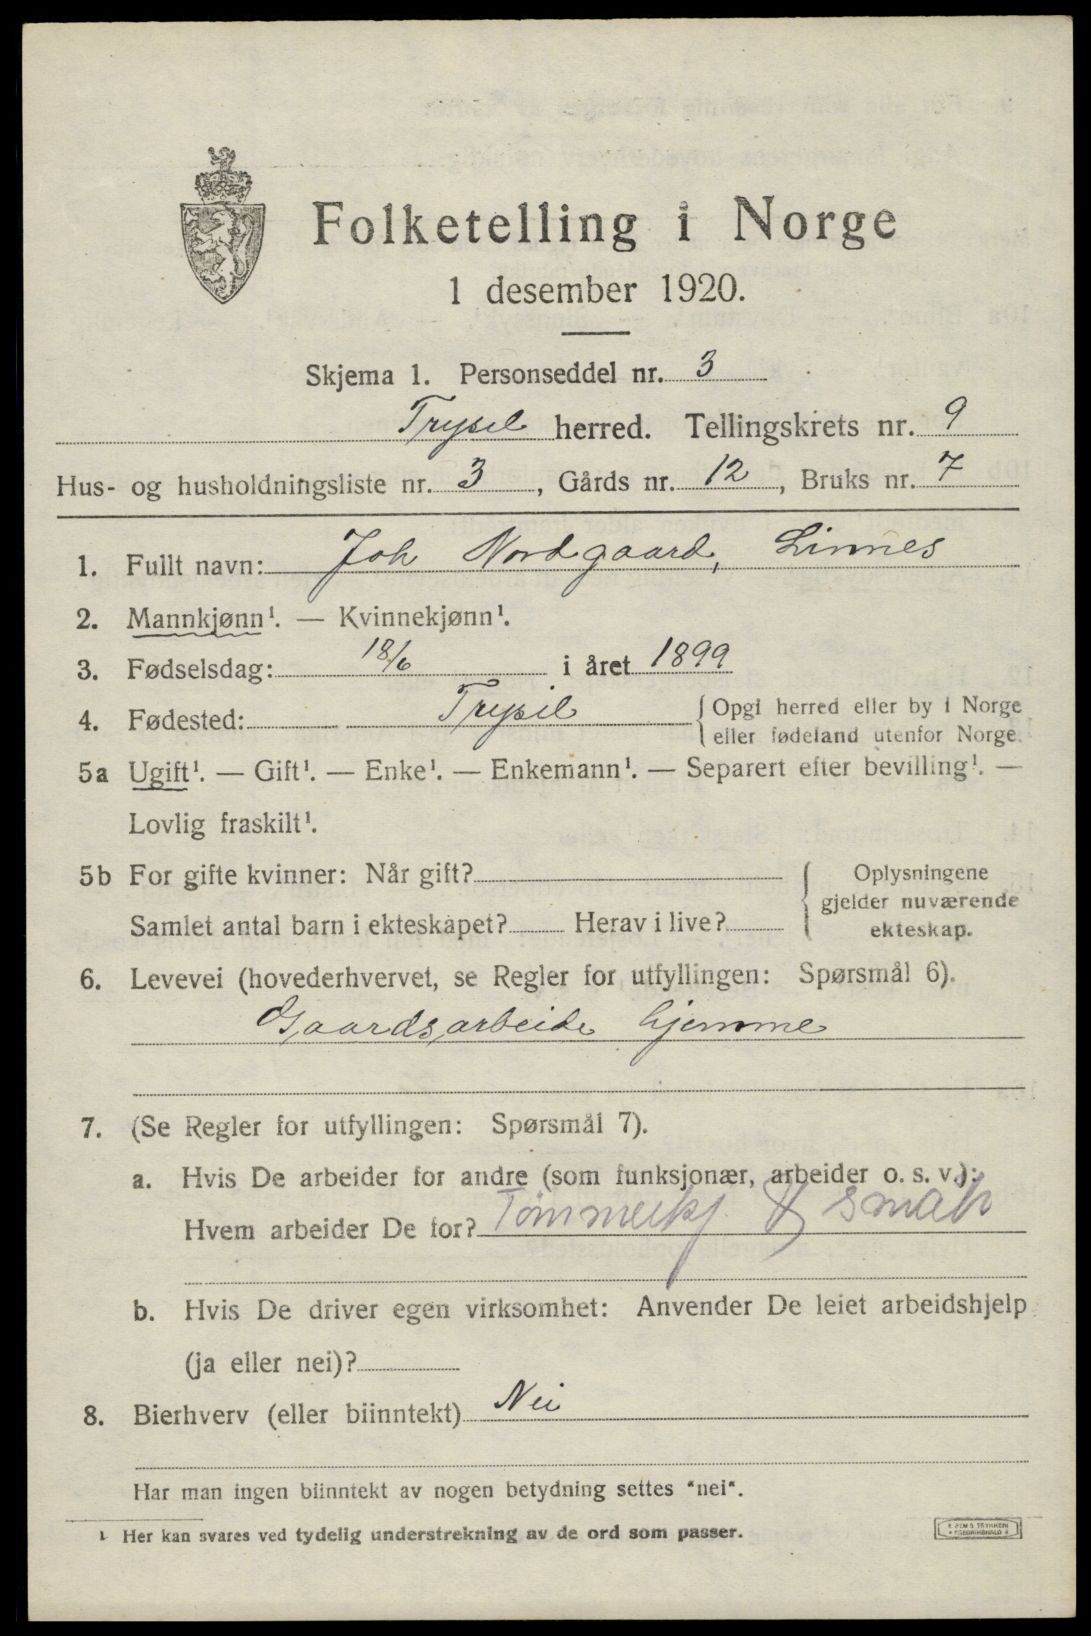 Folketelling i Norge
1 desember 1920.
Skjema 1. Personseddel nr. 3
Trysil herred. Tellingskrets nr. 9
Hus- og husholdningsliste nr. 3, Gårds nr. 12, Bruks nr. 7
1. Fullt navn: Joh Nordgaard, Linnes
2. Mannkjønn¹. — Kvinnekjønn¹.
3. Fødselsdag: 18/6 i året 1899
4. Fødested: Trysil {Opgi herred eller by i Norge
eller fødeland utenfor Norge.
5a Ugift¹. — Gift¹. — Enke¹. — Enkemann¹. — Separert efter bevilling¹. —
Lovlig fraskilt¹.
5b For gifte kvinner: Når gift?
Samlet antal barn i ekteskapet? Herav i live?
Oplysningene
gjelder nuværende
ekteskap.
6. Levevei (hovederhvervet, se Regler for utfyllingen: Spørsmål 6).
Gaardsarbeide hjemme
7. (Se Regler for utfyllingen: Spørsmål 7).
a. Hvis De arbeider for andre (som funksjonær, arbeider o. s. v.):
Hvem arbeider De for? Tømmerkj.
b. Hvis De driver egen virksomhet: Anvender De leiet arbeidshjelp
(ja eller nei)?
8. Bierhverv (eller biinntekt) Nei
Har man ingen biinntekt av nogen betydning settes "nei".
¹ Her kan svares ved tydelig understrekning av de ord som passer.